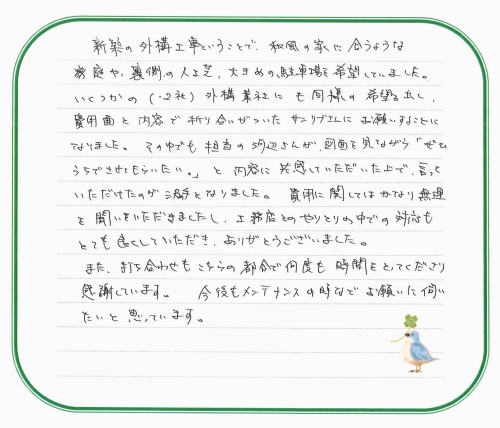 新築の外構工事ということで、和風の家に合うような
家庭や、裏側の人工芝、大きめの駐車場を希望していました。
いくつかの(2社)外構業社にも同様の希望を出し、
費用面と内容で折り合いがついたサンリブエムにお願いすることに
なりました。その中でも担当の渡辺さんが、図面を見ながら「ぜひ
うちでさせてもらいたい。」と内容に共感していただいた上で、言って
いただけたのが決め手となりました。費用に関してはかなり無理
を聞いていただきましたし、工務店とのやりとりの中での対応も
とても良くしていただき、ありがとうございました。
また、打ち合わせもこちらの都合で何度も時間をとってくださり
感謝しています。今後もメンテナンスの時などお願いに伺い
たいと思っています。